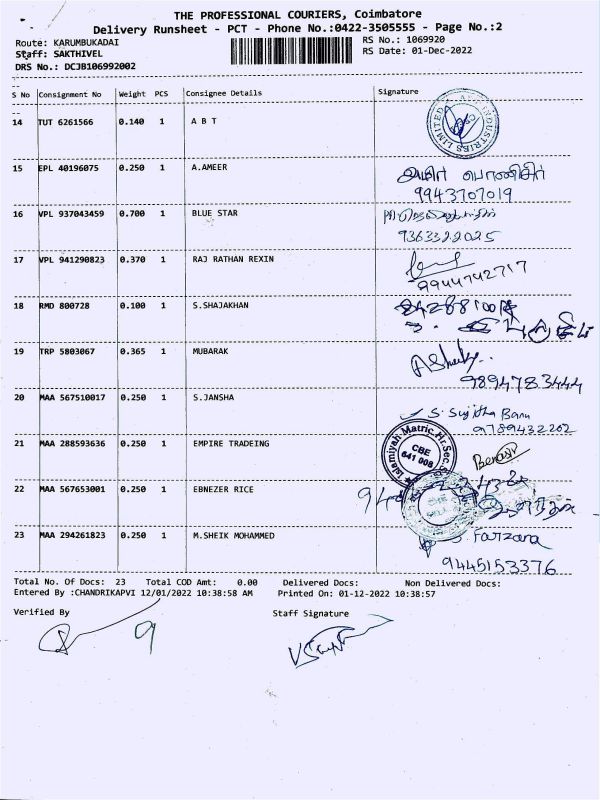 THE PROFESSIONAL COURIERS, Coimbatore
Delivery Runsheet - PCT - Phone No.:0422-3505555 - Page No.:2
Route: KARUMBUKADAI RS No.: 1069920
Staff: SAKTHIVEL RS Date: 01-Dec-2022
DRS No.: DCJB106992002
S No Consignment No Weight PCS Consignee Details Signature
14 TUT 6261566 0.140 1 A B T
INDUSTRIES LIMITED
15 EPL 40196075 0.250 1 A.AMEER
9943707019
16 VPL 937043459 0.700 1 BLUE STAR
9363322025
17 VPL 941290823 0.370 1 RAJ RATHAN REXIN
9944742717
18 RMD 800728 0.100 1 S.SHAJAKHAN
19 TRP 5803067 0.365 1 MUBARAK
9894783444
20 MAA 567510017 0.250 1 S.JANSHA
S. Sujitha Banu
9789432202
21 MAA 288593636 0.250 1 EMPIRE TRADEING
Islamiyah Matric.Hr.Sec.
CBE
641 008
22 MAA 567653001 0.250 1 EBNEZER RICE
23 MAA 294261823 0.250 1 M.SHEIK MOHAMMED
Farzana
9445153376
Total No. Of Docs: 23 Total COD Amt: 0.00 Delivered Docs: Non Delivered Docs:
Entered By :CHANDRIKAPVI 12/01/2022 10:38:58 AM Printed On: 01-12-2022 10:38:57
Verified By Staff Signature
9